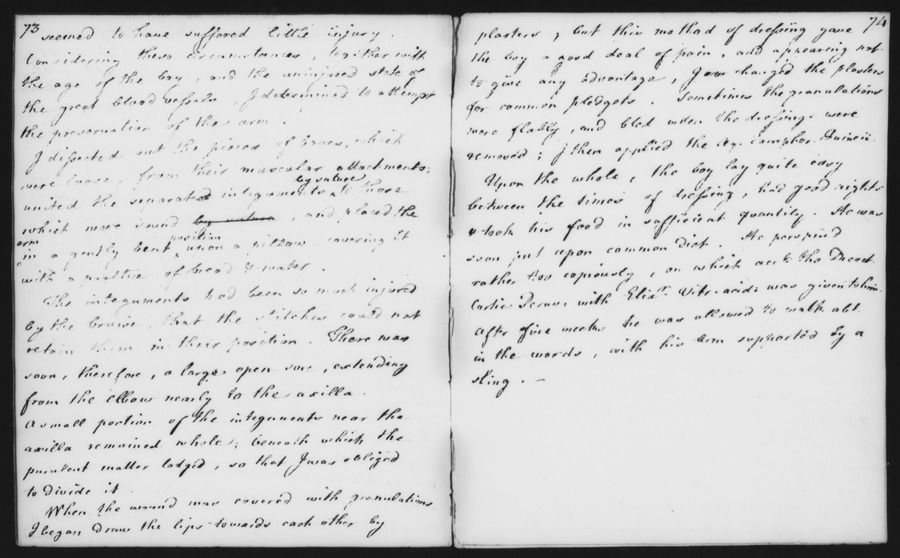 73
seemed to have suffered little injury.
Considering these circumstances, together with
the age of the boy, and the uninjured state of
the great blood vessels, I determined to attempt
the preservation of the arm.
I dissected out the pieces of bones, which
were loose, from their muscular attachments;
by sutures
united the separated integuments to those
which were sound by suture, and placed the
arm position
in a gently bent upon a pillow covering it
with a poultice of bread & water.
The integuments had been so much injured
by the bruise, that the stitches could not
retain them in their position. There was
soon, therefore, a large open sore, extending
from the elbow nearly to the axilla.
A small portion of the integuments near the
axilla remained whole; beneath which the
purulent matter lodged, so that I was obliged
to divide it.
When the wound was covered with granulations
I began draw the lips towards each other by
74
plasters; but this method of dressing gave
the boy a good deal of pain, and appearing not
to give any advantage, I changed the plasters
for common pledgets. Sometimes the granulations
were flabby, and bled when the dressings were
removed; I then applied the camphor.
Upon the whole, the boy lay quite easy
between the times of dressing, had good nights
& took his food in sufficient quantity. He was
soon put upon common diet. He perspired
rather too copiously, on which acct. the Decoct.
Cortic: Peruv: with Elixr. Vitr: acid: was given to him.
After five weeks he was allowed to walk abt.
in the wards, with his arm supported by a
sling. —